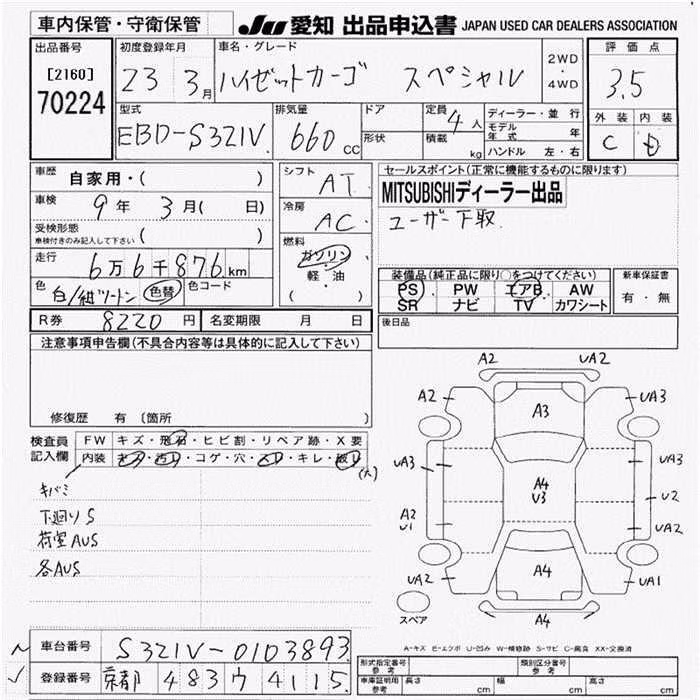 車内保管・守衛保管 JU 愛知 出品申込書 JAPAN USED CAR DEALERS ASSOCIATION
出品番号 初度登録年月 車名・グレード 2WD ・ 4WD 評価点
[2160] 23 3月 ハイゼットカーゴ スペシャル 3.5
70224
型式 排気量 ドア 定員 4人 ディーラー・並行 外装 内装
EBD-S321V 660 CC 形状 積載 kg モデル年式 年 C D
ハンドル 左・右
車歴 自家用・( ) シフト AT セールスポイント(正常に機能するものに限ります)
車検 9年 3月( 日) 冷房 AC MITSUBISHIディーラー出品
受検形態 車検付きのみ記入して下さい ( ) ユーザー下取
走行 6万6千876km 燃料 ガソリン・軽・油 ( )
装備品(純正品に限り○をつけてください) 新車保証書
色 白/紺ツートン 色替 色コード PS PW エアB AW 有・無
SR ナビ TV カワシート
R券 8220円 名変期限 月 日 後日品
注意事項申告欄(不具合内容等は具体的に記入して下さい)
修復歴 有 〔箇所 〕
検査員記入欄 FW キズ・飛石・ヒビ割・リペア跡・X要
内装 キズ・汚れ・コゲ・穴・スレ・キレ・破れ (大)
キバミ
下廻りS
荷室AUS
各AUS
A2 UA2
A2 A3 UA3
UA3 UA3
A4
U3 U2
A2
U1 UA2
UA2 A4 UA1
スペア A4
A-キズ E-エクボ U-凹み W-補修跡 S-サビ C-腐食 XX-交換済
車台番号 S321V-0103893
登録番号 京都 483 ウ 4115
形式指定番号 参考 類別区分番号 参考
車庫証明用 参考 長さ cm 幅 cm 高さ cm